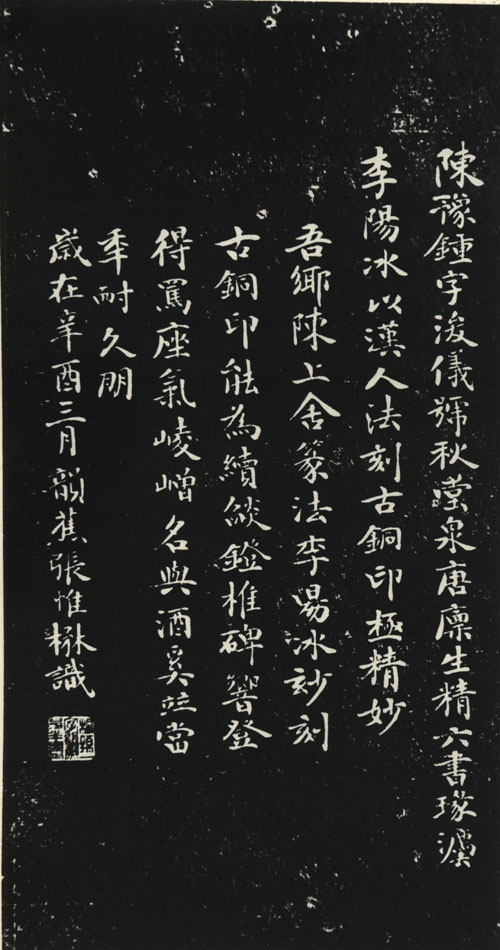 陳豫鍾字浚儀號秋堂泉唐廩生精六書瑑
李陽冰以漢人法刻古銅印極精妙
吾鄉陳上舍篆法李昜冰玅刻
古銅印能為續燄鐙椎碑響登
得罵座氣崚嶒名與酒奚竝當
秊耐久朋
歲在辛酉三月韻蕉張惟楙識